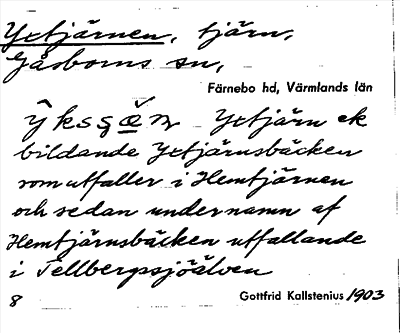 Yxtjärnen, tjärn,
Gåsborns sn,
Färnebo hd, Värmlands län
Yxtjärn ek
bildande Yxtjärnsbäcken
som utfaller i Hemtjärnen
och sedan under namn af
Hemtjärnsbäcken utfallande
i Tellbergssjöälven
8 Gottfrid Kallstenius 1903